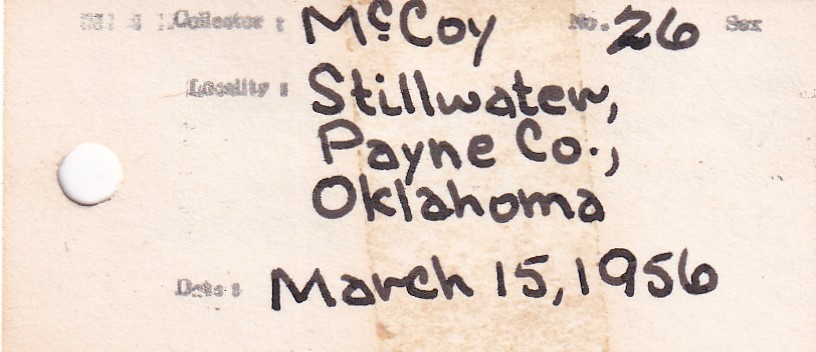 Collector : McCoy No. 26 Sex
Locality : Stillwater,
Payne Co.,
Oklahoma
Date : March 15, 1956